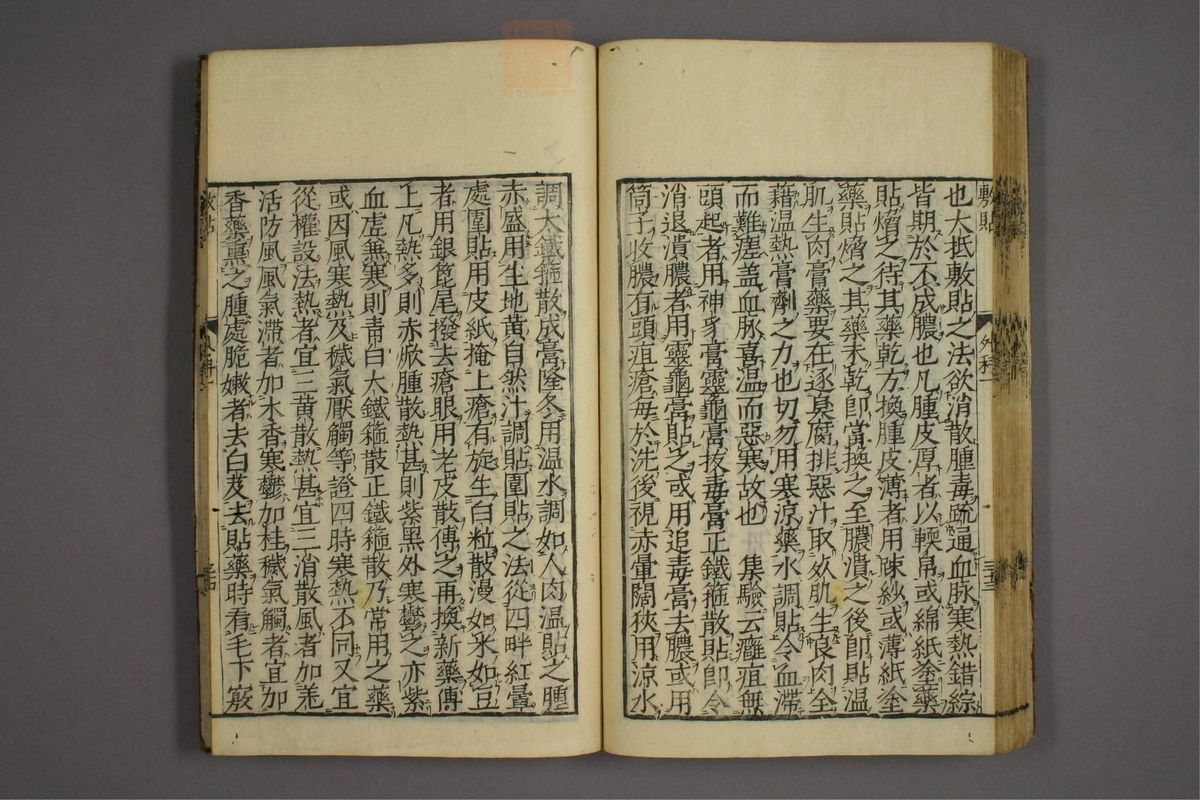 敷貼
外科一
三十三
也大抵敷貼之法欲消散腫毒疏通血脉寒熱錯綜
皆期於不成膿也凡腫皮厚者以軟帛或綿紙塗藥
貼熁之待其藥乾方換腫皮薄者用疎紗或薄紙塗
藥貼熁之其藥未乾即當換之至膿潰之後即貼溫
肌生肉膏藥要在逐臭腐排惡汁取效肌生良肉全
藉溫熱膏劑之力也切勿用寒涼藥水調貼令血滯
而難瘥盖血脉喜溫而惡寒故也 集驗云癰疽無
頭起者用神手膏靈龜膏拔毒膏正鐵箍散貼即令
消退潰膿者用靈龜膏貼之或用追毒膏去膿或用
筒子收膿有頭疽瘡毎於洗後視赤暈闊狹用涼水
調大鐵箍散成膏隆冬用溫水調如人肉溫貼之腫
赤盛用生地黃自然汁調貼圍貼之法從四畔紅暈
處圍貼用皮紙掩上瘡有旋生白粒散漫如米如豆
者用銀篦尾撥去瘡眼用老皮散傅之再換新藥傅
上凡熱多則赤焮腫散熱甚則紫黑外寒鬱之亦紫
血虛無寒則青白大鐵箍散正鐵箍散乃常用之藥
或因風寒熱及穢氣厭觸等證四時寒熱不同又宜
從權設法熱者宜三黃散熱甚宜三消散風者加羗
活防風風氣滯者加木香寒鬱加桂穢氣觸者宜加
香藥薰之腫處脆嫩者去白芨夫貼藥時看毛下竅